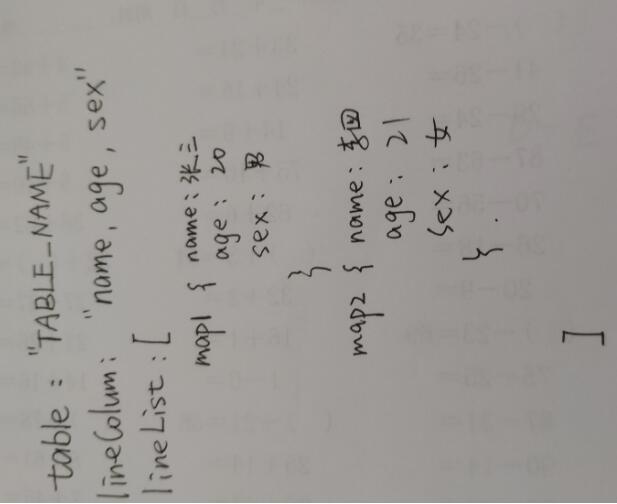 table : "TABLE_NAME"
lineColum : "name, age, sex"
lineList : [
map1 { name : 张三
age : 20
sex : 男
}
map2 { name : 李四
age : 21
sex : 女
}
]